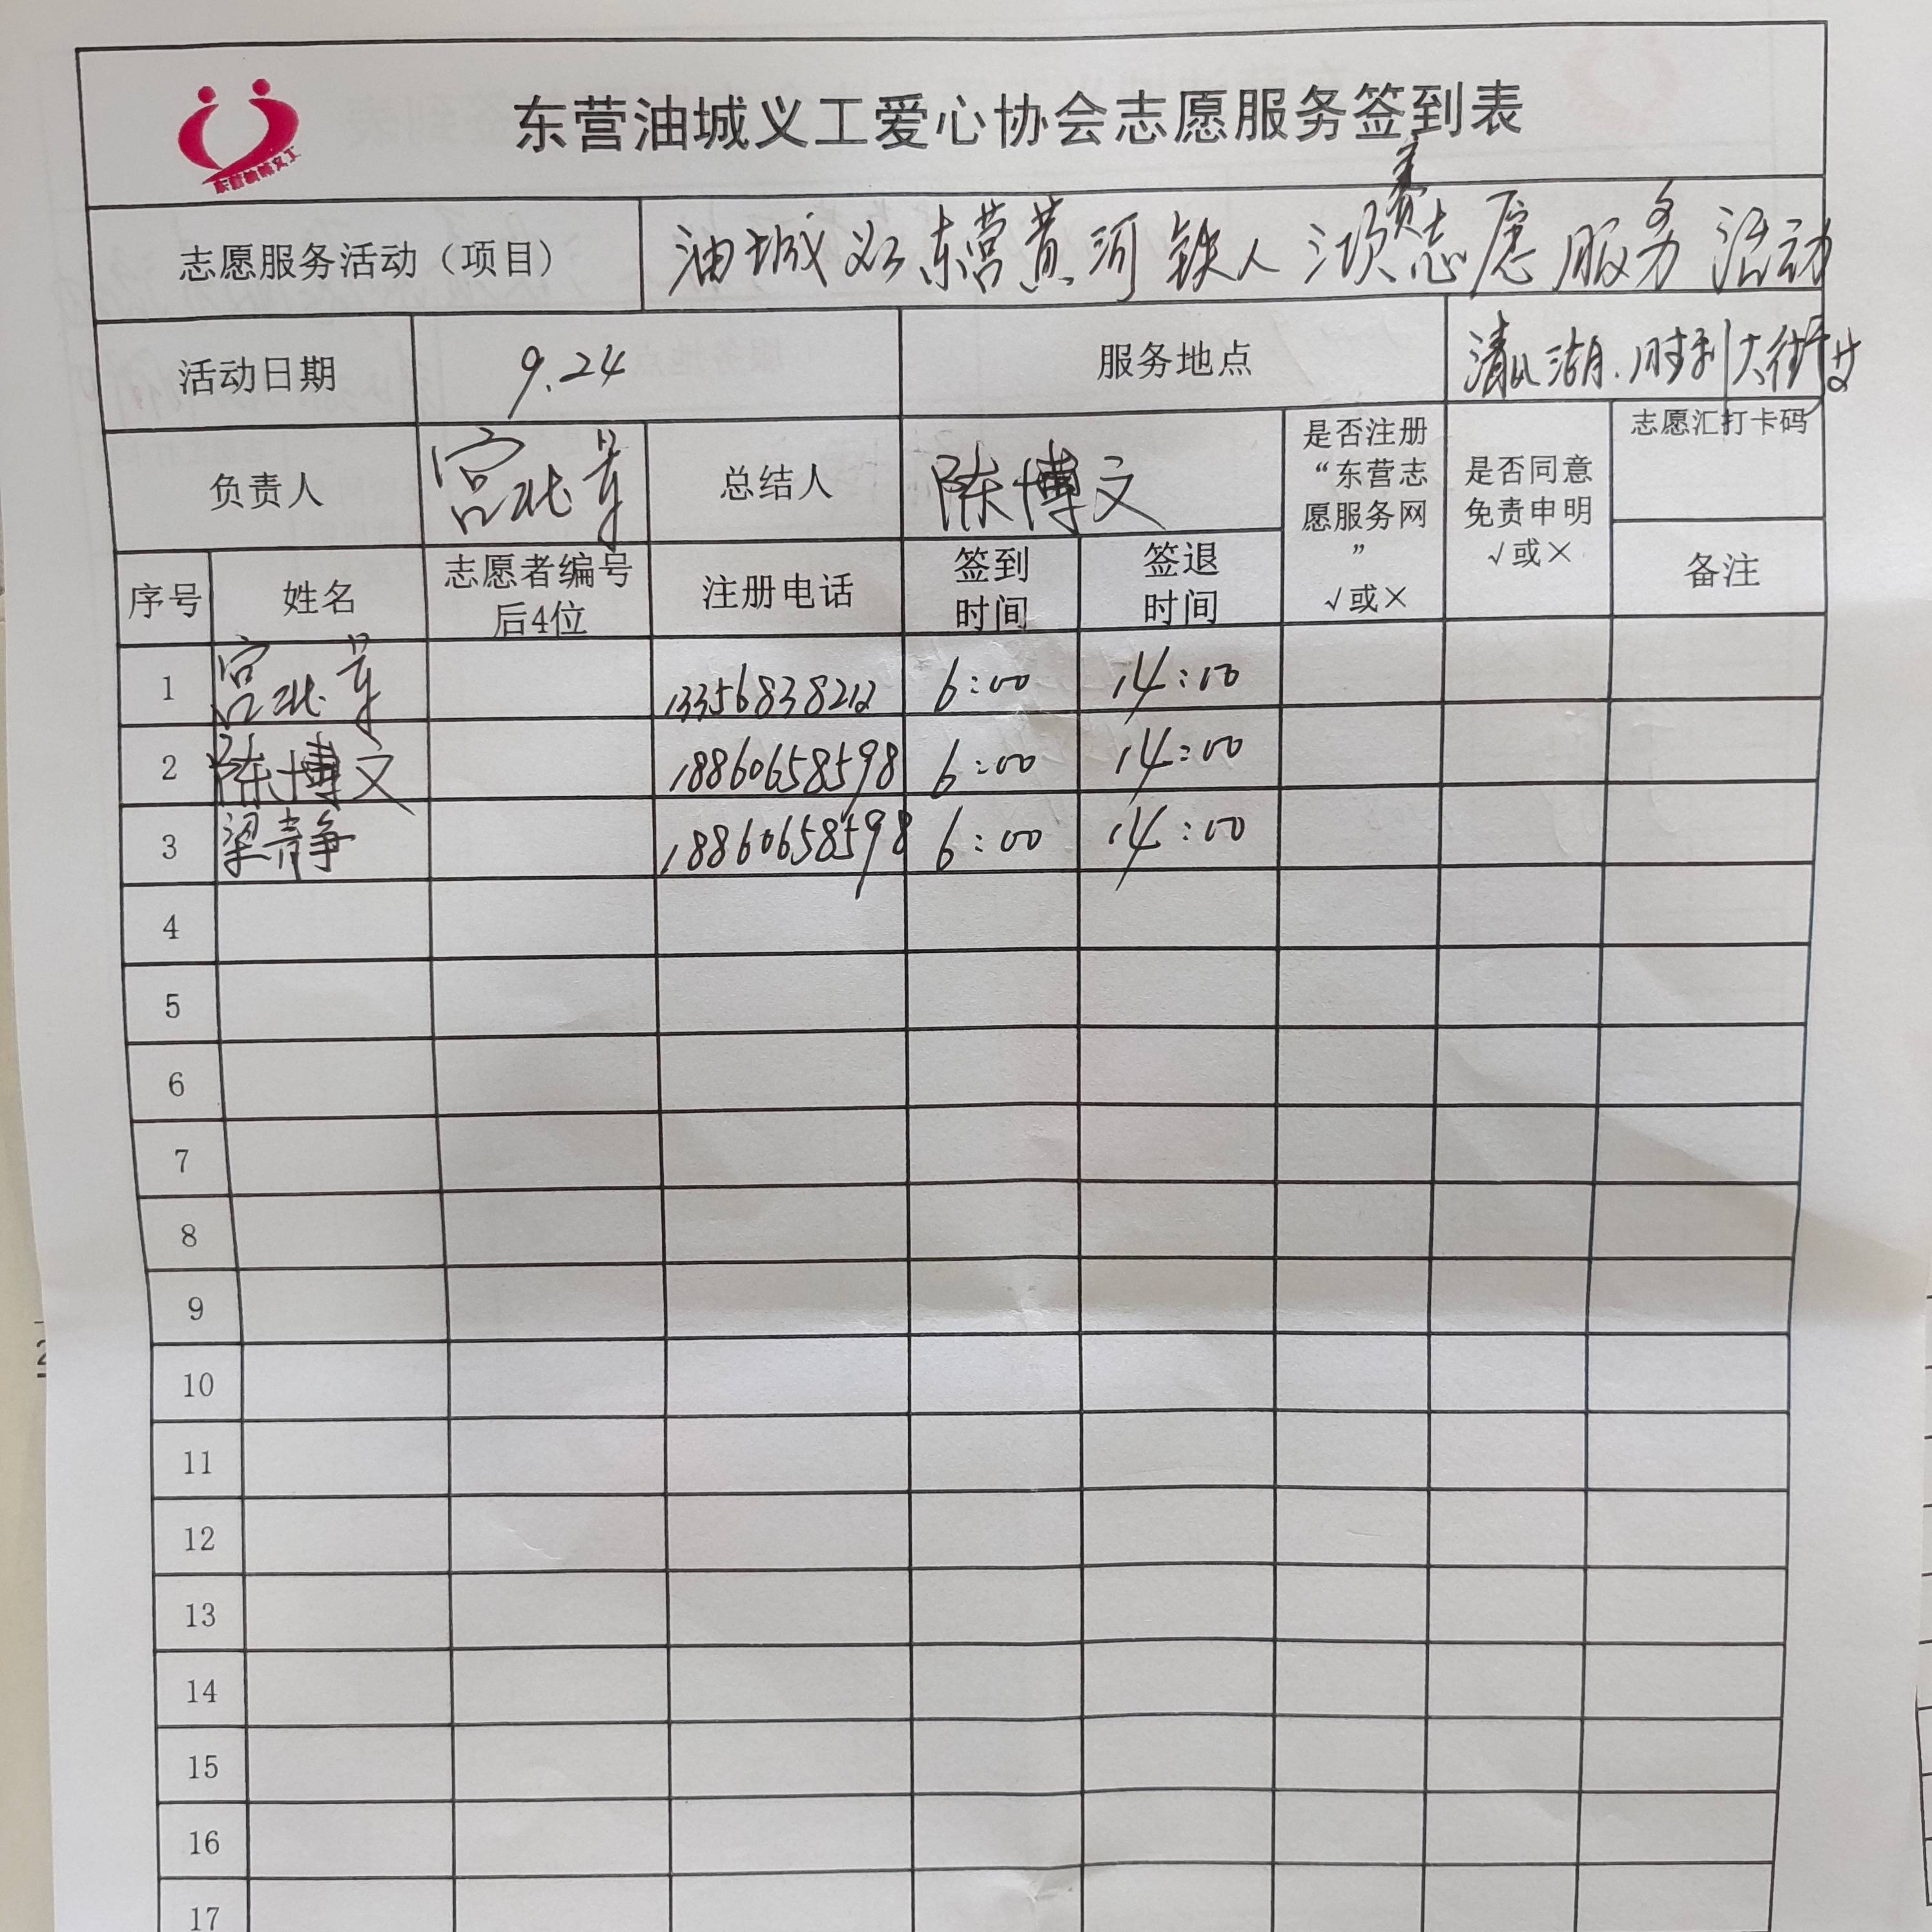 东营油城义工
东营油城义工爱心协会志愿服务签到表
志愿服务活动（项目） 油城义工东营黄河铁人三项赛志愿服务活动
活动日期 9.24 服务地点 清风湖.胜利大街
负责人 宫 总结人 陈博文 是否注册“东营志愿服务网” √或× 是否同意免责申明 √或× 志愿汇打卡码
序号 姓名 志愿者编号后4位 注册电话 签到时间 签退时间 备注
1 宫 13356838212 6:00 14:00
2 陈博文 18860658598 6:00 14:00
3 梁静 18860658598 6:00 14:00
4
5
6
7
8
9
10
11
12
13
14
15
16
17
2